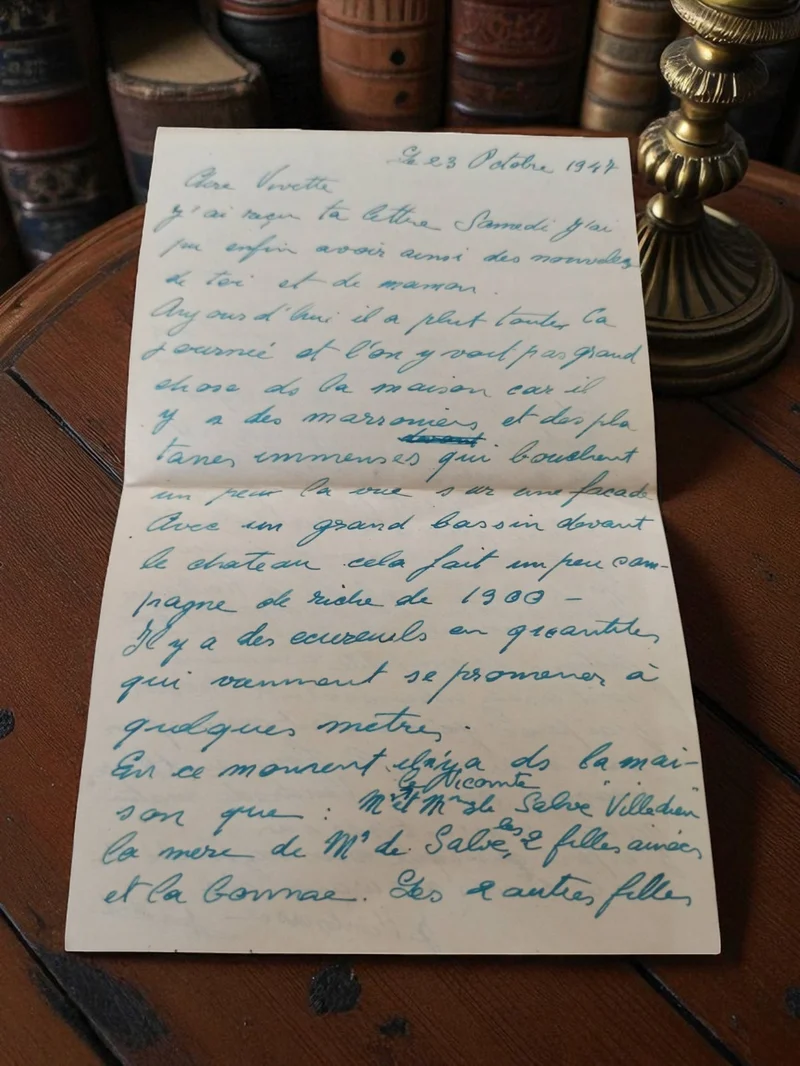 Le 23 Octobre 1947
Chere Vivette
J'ai reçu ta lettre Samedi J'ai
pu enfin avoir ainsi des nouvelles
de toi et de maman.
Aujourd'hui il a plut toutes la
journée et l'on y voit pas grand
chose ds la maison car il
y a des marroniers et des pla
tanes immenses qui bouchent
un peu la vue sur une facade
Avec un grand bassin devant
le chateau cela fait un peu cam-
pagne de riche de 1900 -
Il y a des ecureuils en quantites
qui viennent se promener à
quelques metres.
En ce moment il n'y a ds la mai-
le Vicomte
son que : Mr et Mme de Salve "Villedieu"
la mere de Mr de Salve, les 2 filles ainées
et la bonnae. Les 2 autres filles